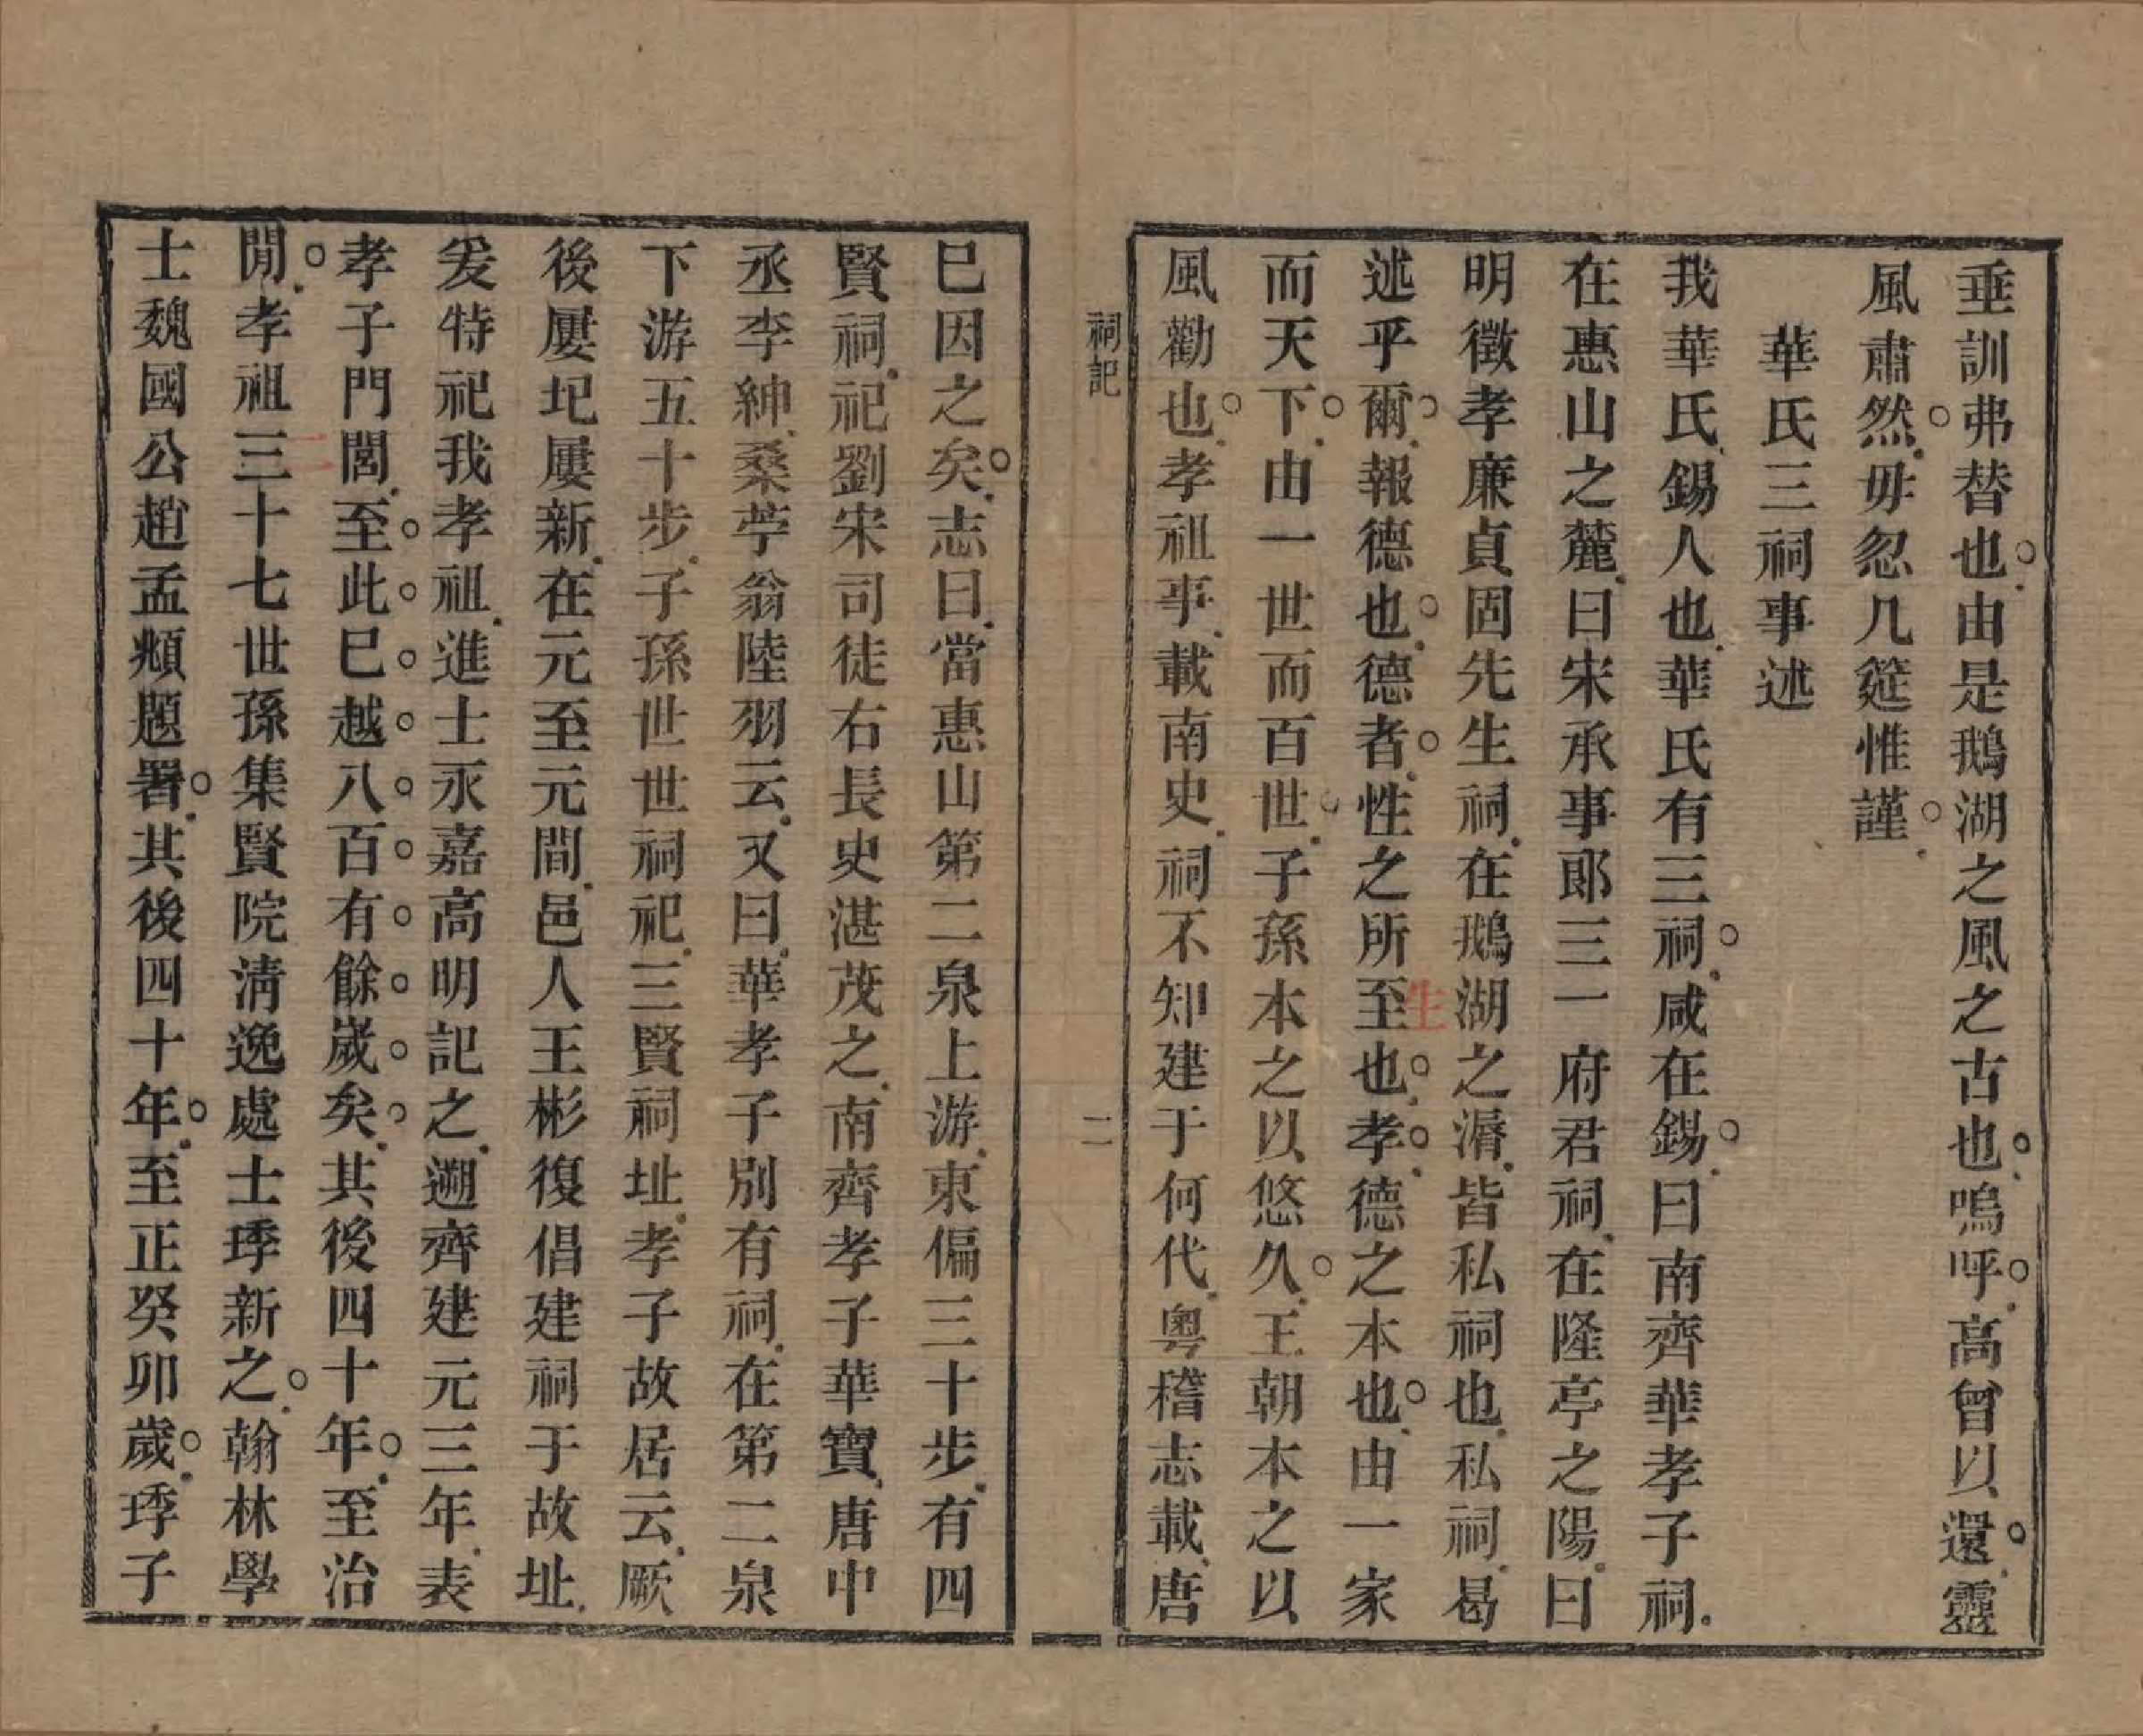 垂訓弗替也由是鵝湖之風之古也嗚呼高曾以還靈
風肅然毋忽几筵惟謹
華氏三祠事述
我華氏錫人也華氏有三祠咸在錫曰南齊華孝子祠
在惠山之麓曰宋承事郎三一府君祠在隆亭之陽曰
明徵孝廉貞固先生祠在鵝湖之漘皆私祠也私祠曷
述乎爾報德也德者性之所至也孝德之本也由一家
生
而天下由一世而百世子孫本之以悠久王朝本之以
風勸也孝祖事載南史祠不知建于何代粵稽志載唐
祠記
二
巳因之矣志曰當惠山第二泉上游東偏三十步有四
賢祠祀劉宋司徒右長史湛茂之南齊孝子華寶唐中
丞李紳桑苧翁陸羽云又曰華孝子別有祠在第二泉
下游五十步子孫世世祠祀三賢祠址孝子故居云厥
後屢圮屢新在元至元間邑人王彬復倡建祠于故址
爰特祀我孝祖進士永嘉高明記之遡齊建元三年表
孝子門閭至此巳越八百有餘歲矣其後四十年至治
二
閒孝祖三十七世孫集賢院淸逸處士珵新之翰林學
士魏國公趙孟頫題署其後四十年至正癸卯歲珵子